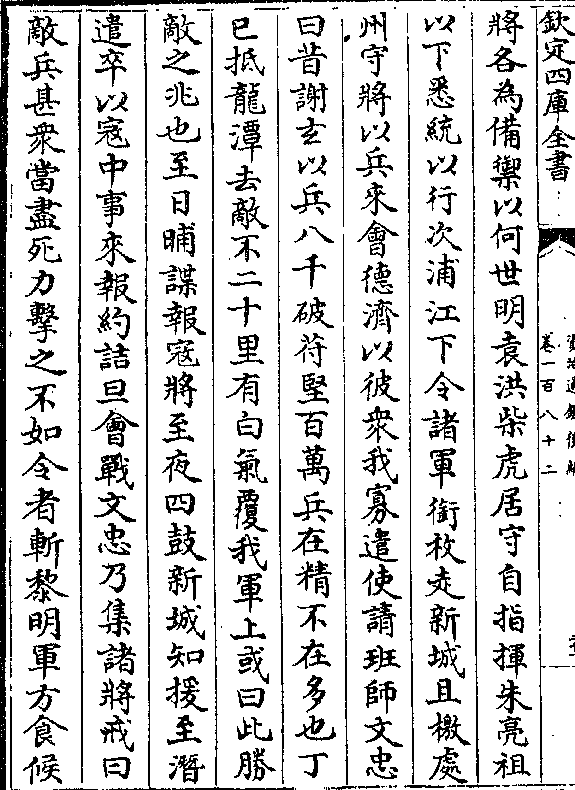 欽定四庫全書
卷一百八十二
將各為備禦以何世明袁洪柴虎居守自指揮朱亮祖
以下悉統以行次浦江下令諸軍銜枚走新城且檄處
州守將以兵來會德濟以彼衆我寡遣使請班師文忠
曰昔謝玄以兵八千破苻堅百萬兵在精不在多也丁
巳抵龍潭去敵不二十里有白氣覆我軍上或曰此勝
敵之兆也至日晡諜報寇將至夜四鼓新城知援至潛
遣卒以寇中事來報約詰旦會戰文忠乃集諸將戒曰
敵兵甚衆當盡死力擊之不如令者斬黎明軍方食候